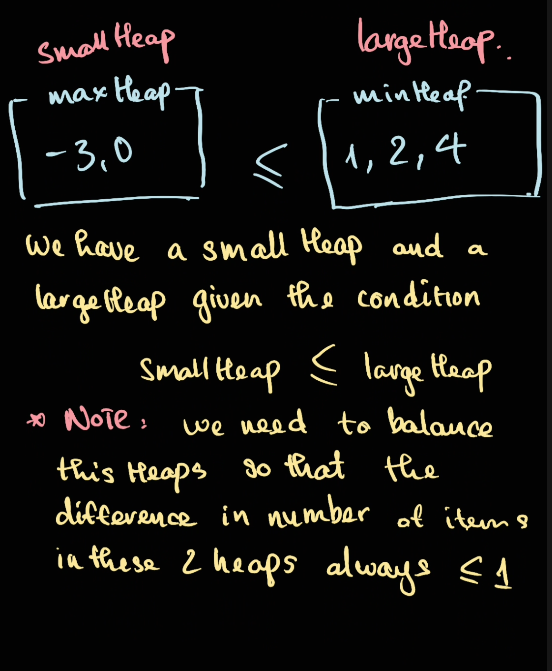 Small Heap largeHeap..
maxHeap minHeap
-3,0 ≤ 1, 2, 4
We have a small Heap and a
largeHeap given the condition
Small Heap ≤ large Heap
* NOTE: we need to balance
this Heaps so that the
difference in number of items
in these 2 heaps always ≤ 1